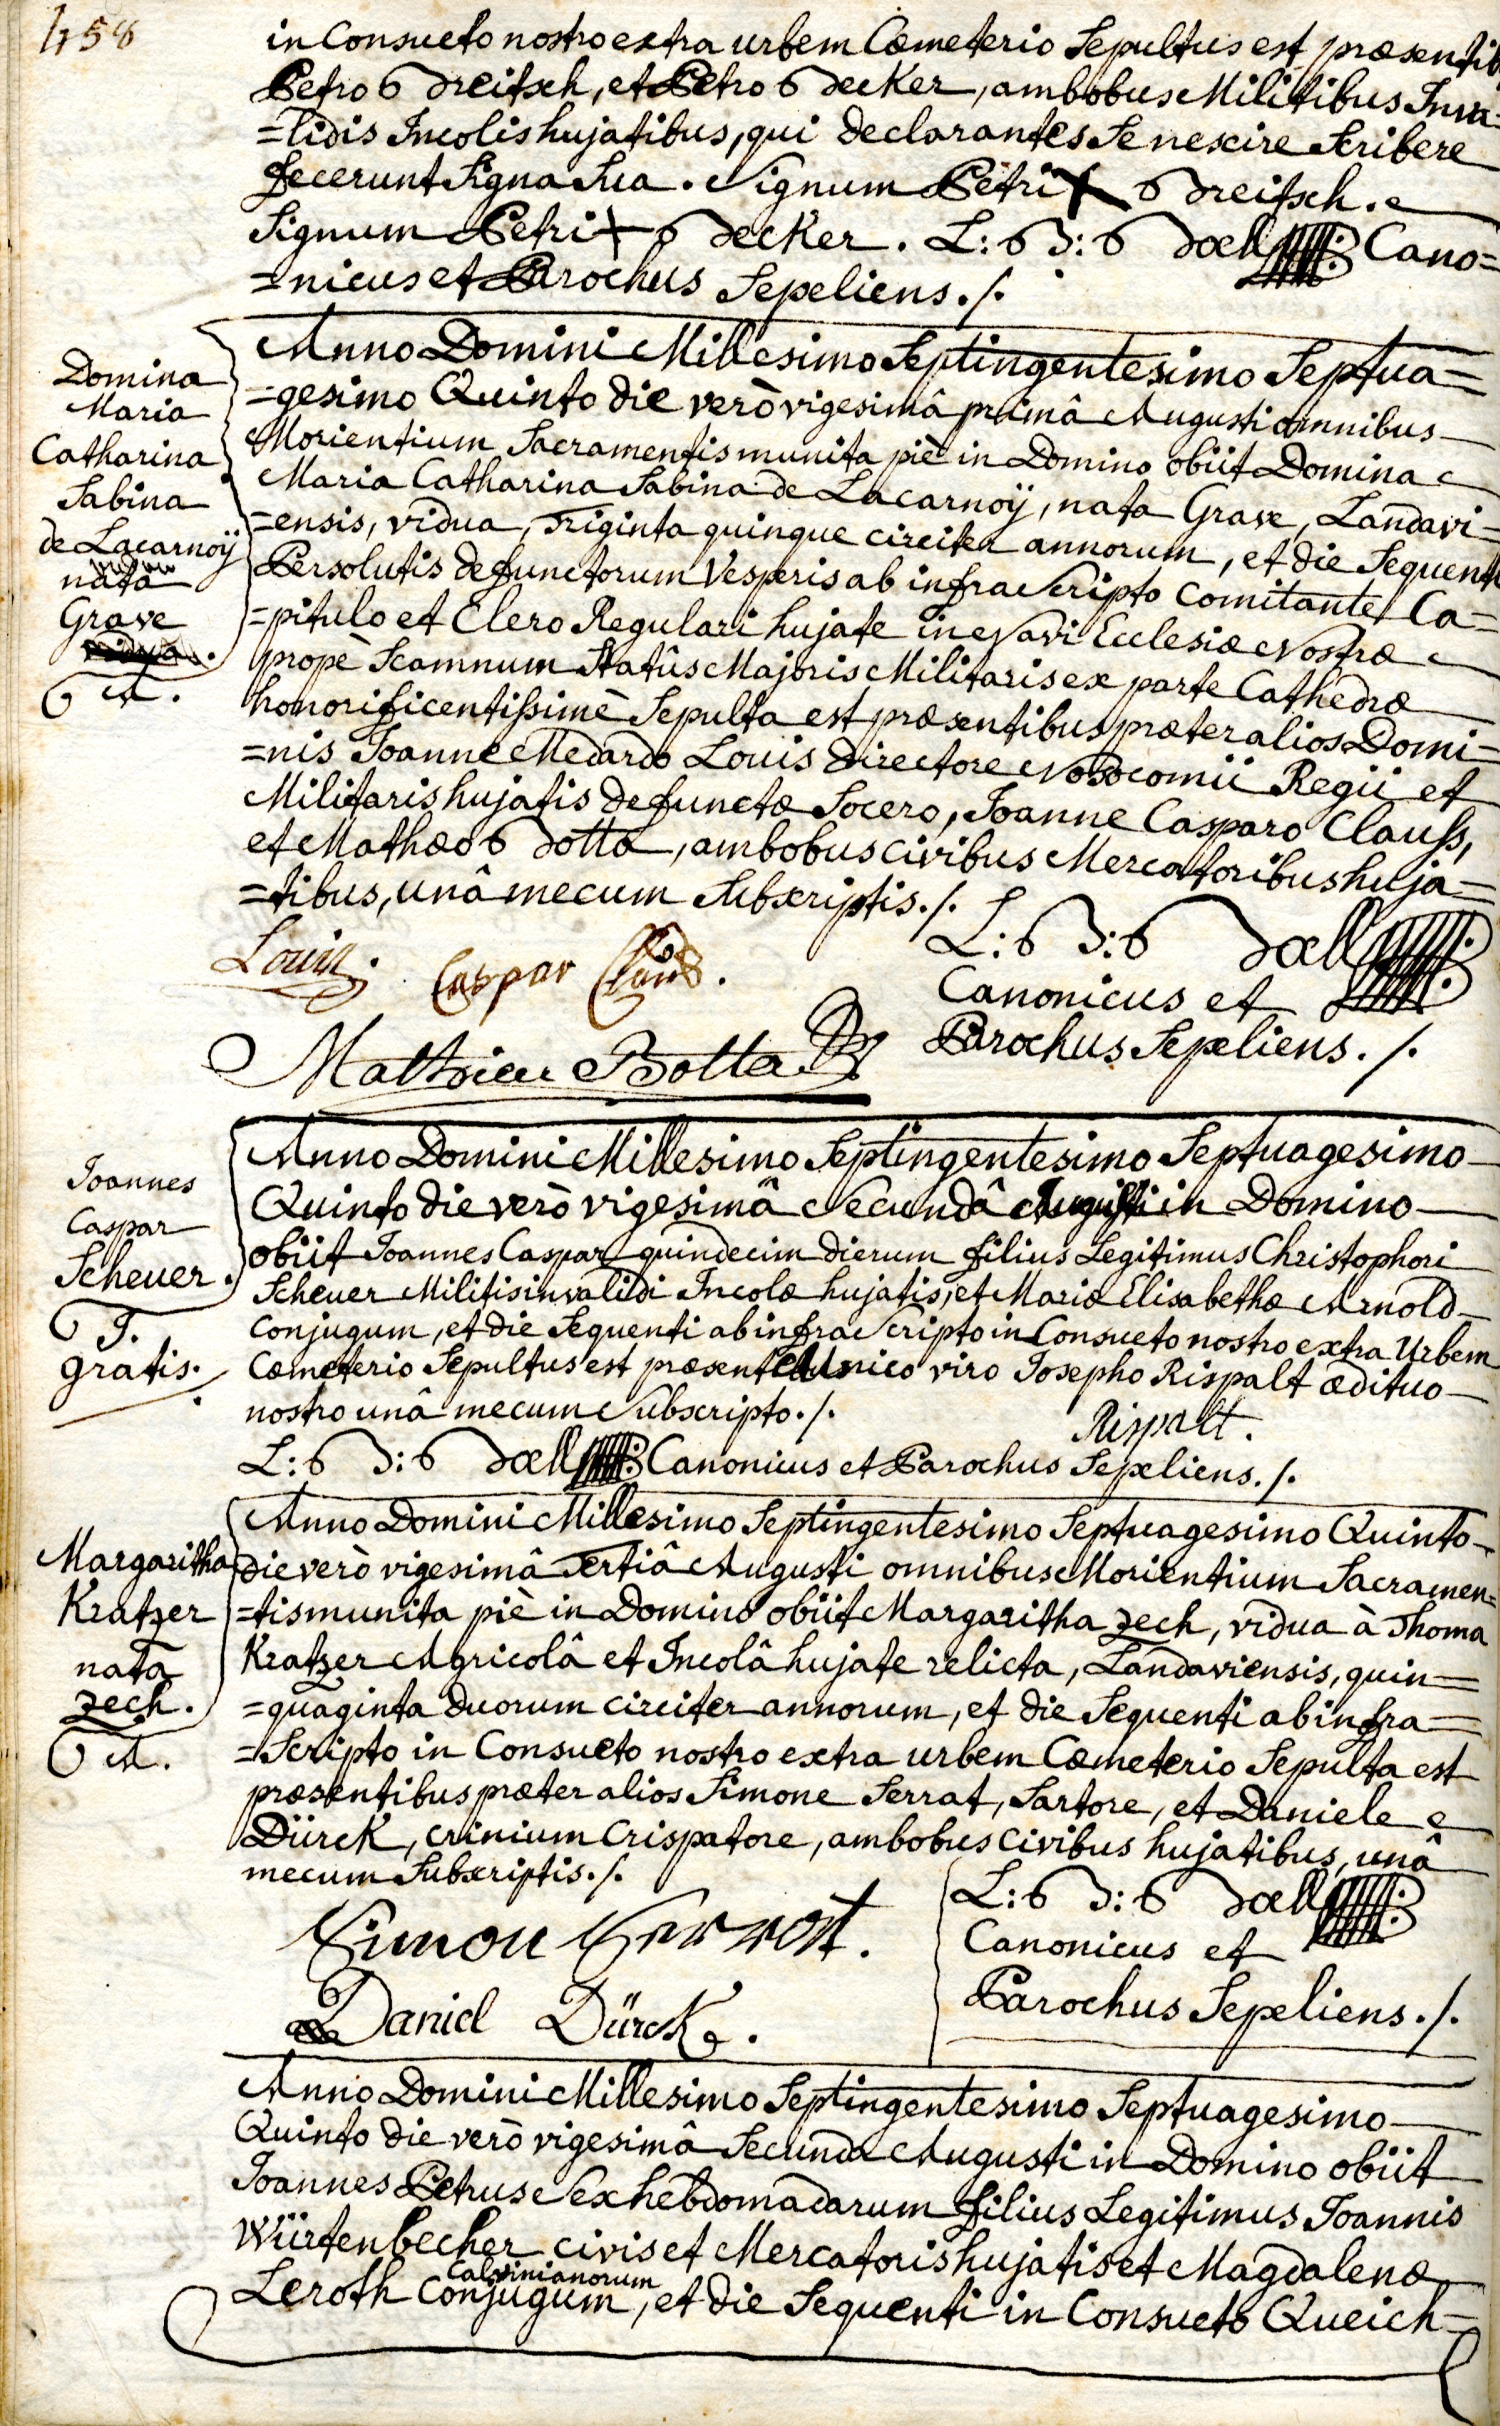 458
in Consueto nostro extra urbem Cœmeterio Sepultus est præsentib
Petro Breitsch, et Petro Becker, ambobus Militibus Inva=
=lidis Incolis hujatibus, qui declarantes Se nescire Scribere
fecerunt Signa Sua. Signum Petri X Breitsch.
Signum Petri + Becker. L: B: Boell Cano=
=nicus et Parochus Sepeliens./.
Domina
Maria
Catharina
Sabina
de Lacarnoÿ
nata
Grave
A.
Anno Domini Millesimo Septingentesimo Septua=
=gesimo Quinto die verò vigesimâ primâ Augusti omnibus
Morientium Sacramentis munita piè in Domino obiit Domina
Maria Catharina Sabina de Lacarnoÿ, nata Grave, Landavi=
=ensis, vidua, Triginta quinque circiter annorum, et die Sequenti
Persolutis defunctorum Vesperis ab infra Scripto Comitante Ca=
=pitulo et Clero Regulari hujate in Navi Ecclesiæ Nostræ
propè Scamnum Statûs Majoris Militaris ex parte Cathedræ
honorificentissimè Sepulta est præsentibus præter alios Domi=
=nis Joanne Medardo Louis directore Nosocomii Regii et
Militaris hujatis defunctæ Socero, Joanne Casparo Clauss,
et Mathæo Botta, ambobus civibus Mercatoribus huja=
=tibus, unâ mecum Subscriptis./.
Louis. Caspar Clauß.
Mathieu Botta
L: B: Boell
Canonicus et
Parochus Sepeliens./.
Joannes
Caspar
Scheuer.
I.
gratis.
Anno Domini Millesimo Septingentesimo Septuagesimo
Quinto die verò vigesimâ Secundâ Augusti in Domino
obiit Joannes Caspar quindecim dierum filius Legitimus Christophori
Scheuer Militis invalidi Incolæ hujatis, et Mariæ Elisabethæ Arnold
Conjugum, et die Sequenti ab infra Scripto in Consueto nostro extra Urbem
Cœmeterio Sepultus est præsente Unico viro Josepho Rispalt ædituo
nostro unâ mecum Subscripto./.
Rispalt.
L: B: Boell Canonicus et Parochus Sepeliens./.
Margaritha
Kratzer
nata
zech.
A.
Anno Domini Millesimo Septingentesimo Septuagesimo Quinto
die verò vigesimâ Tertiâ Augusti omnibus Morientium Sacramen=
=tis munita piè in Domino obiit Margaritha zech, vidua à Thoma
Kratzer Agricolâ et Incolâ hujate relicta, Landaviensis, quin=
=quaginta duorum circiter annorum, et die Sequenti ab infra=
=Scripto in Consueto nostro extra urbem Cœmeterio Sepulta est
præsentibus præter alios Simone Serrat, Sartore, et Daniele
Dürck, crinium Crispatore, ambobus Civibus hujatibus, unâ
mecum Subscriptis./.
Simon Serrat.
Daniel Dürck.
L: B: Boell
Canonicus et
Parochus Sepeliens./.
Anno Domini Millesimo Septingentesimo Septuagesimo
Quinto die verò vigesimâ Secunda Augusti in Domino obiit
Joannes Petrus Sex hebdomadarum filius Legitimus Joannis
Würtenbecher civis et Mercatoris hujatis et Magdalenæ
Calvinianorum
Leroth Conjugum, et die Sequenti in Consueto Queich=